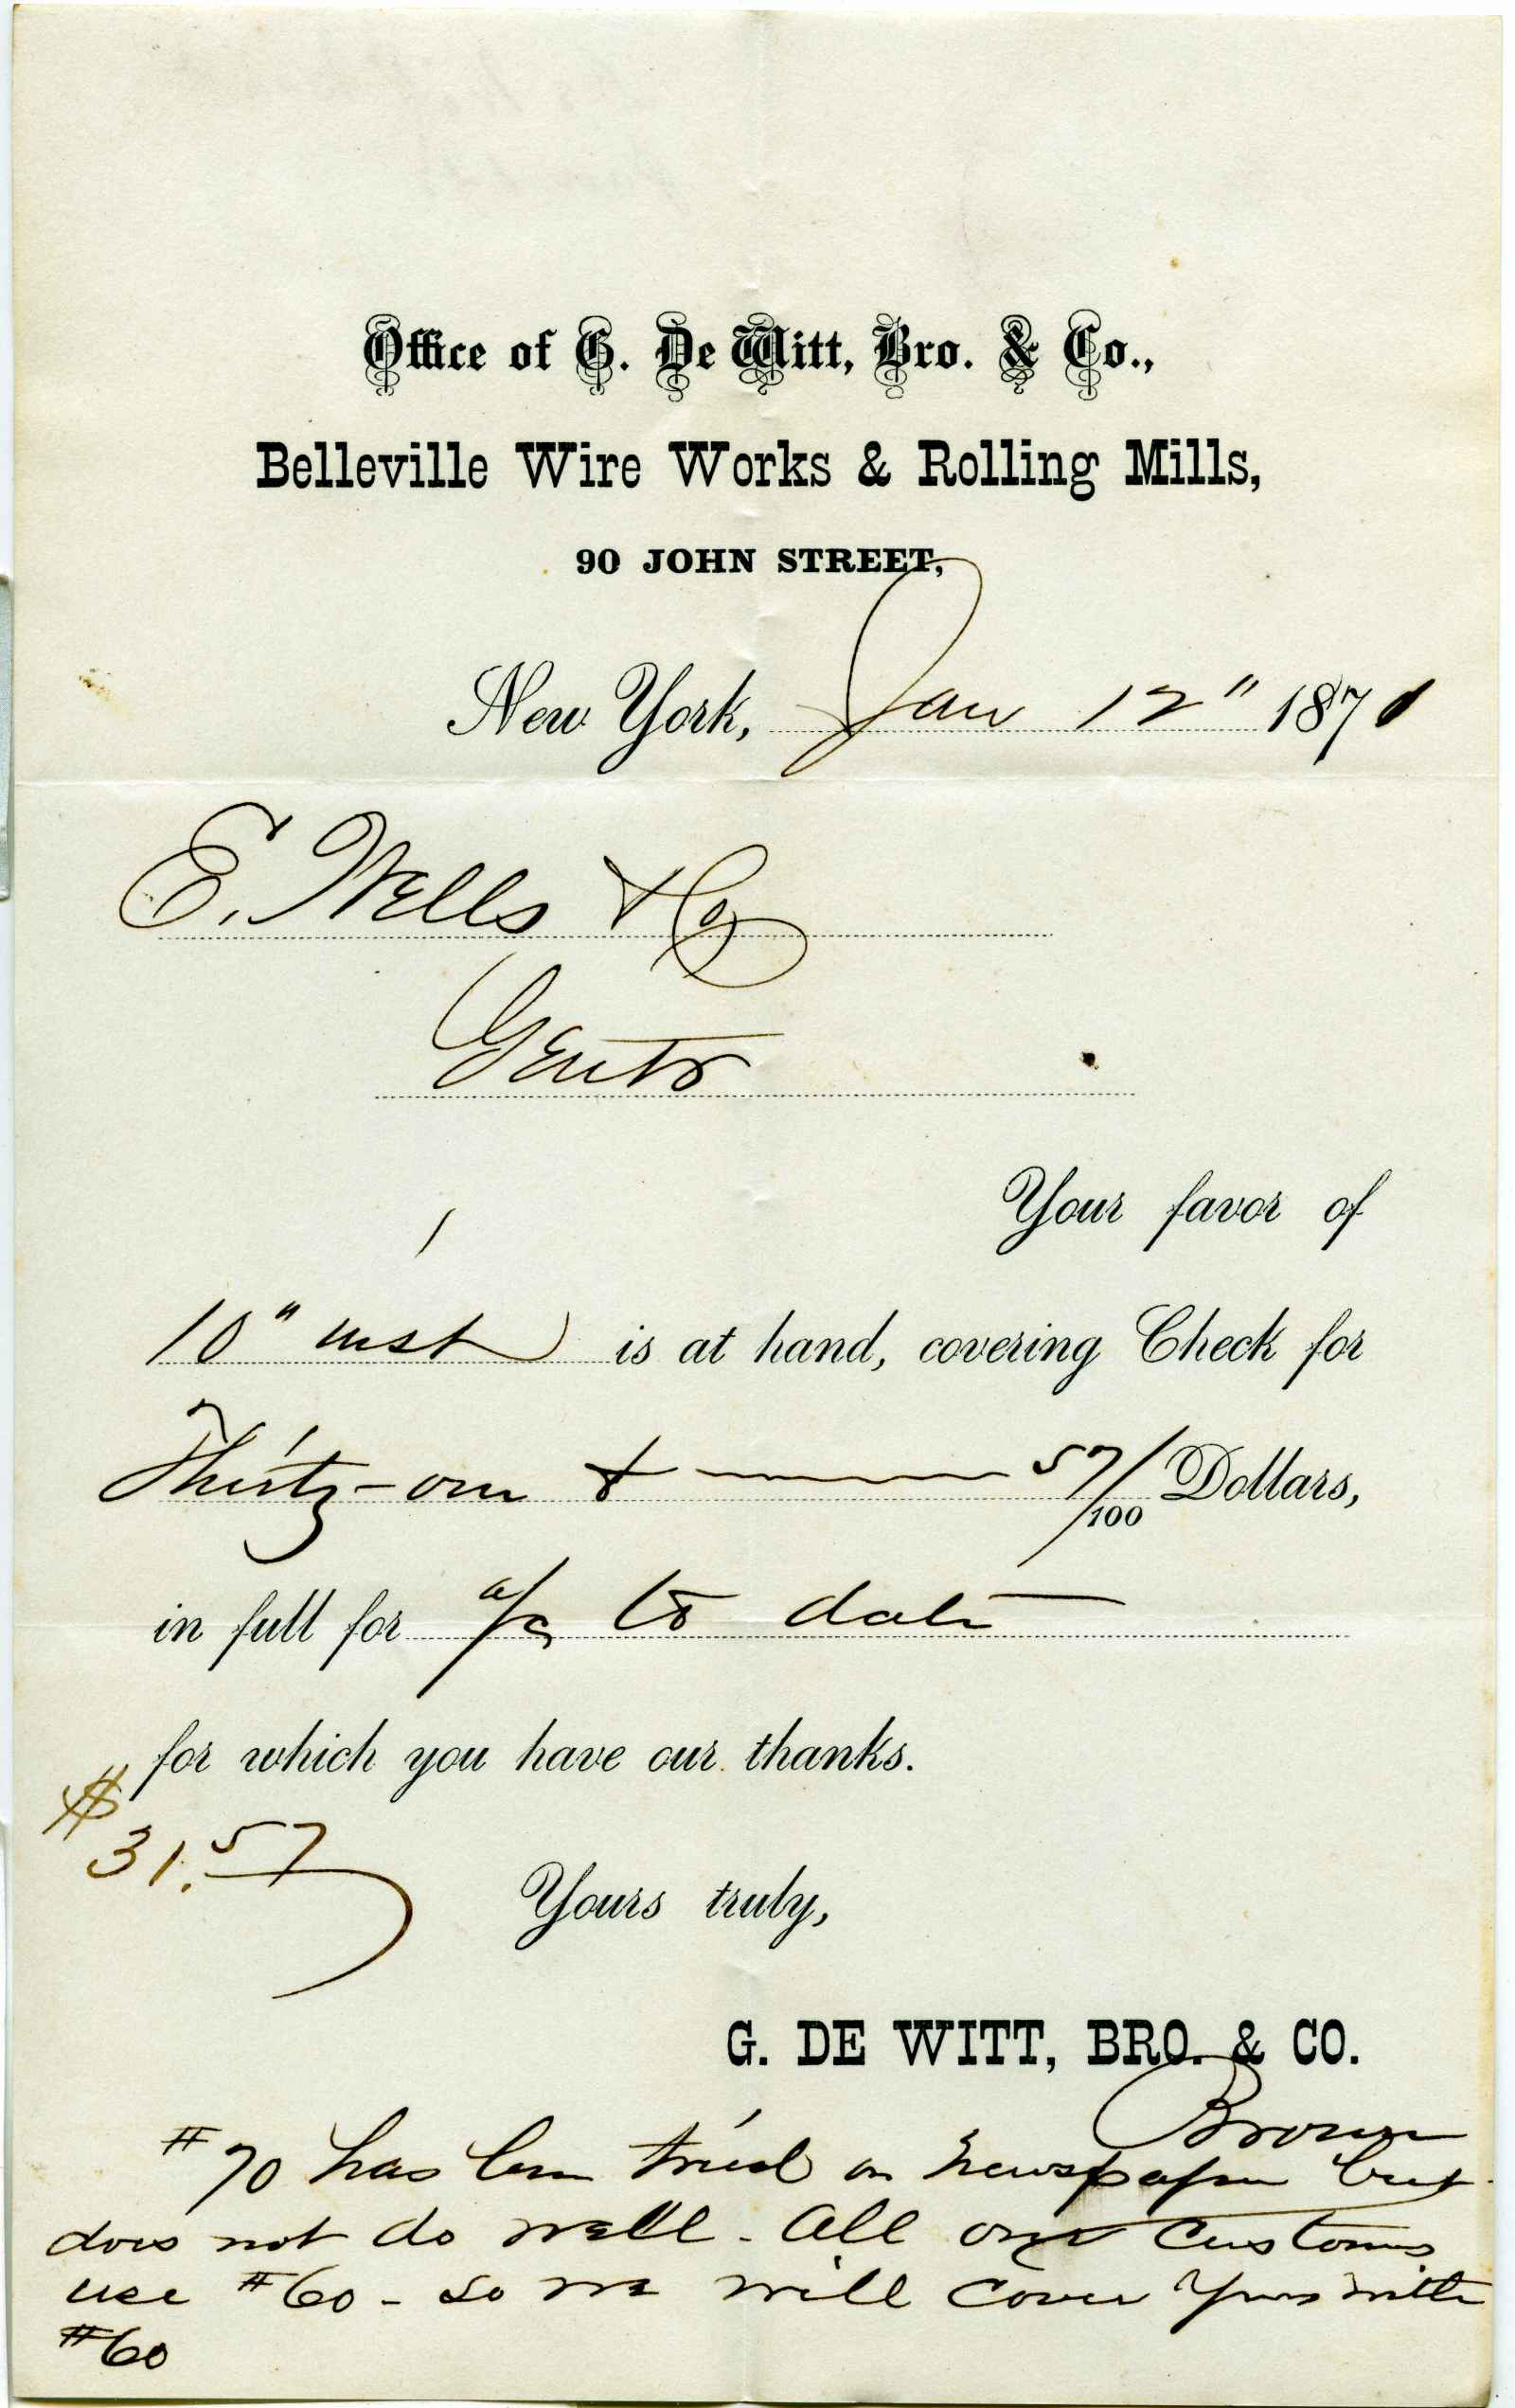 Office of G. De Witt, Bro. & Co.,
Belleville Wire Works & Rolling Mills,
90 JOHN STREET,
New York, Jan 12" 1871
E. Wells & Co
Gents
Your favor of
10" inst is at hand, covering Check for
Thirty-one & 57/100 Dollars,
in full for a/c to date
for which you have our thanks.
$31.57
Yours truly,
G. DE WITT, BRO. & CO.
Brown
#70 has been tried on newspaper but
does not do well - all our customs
use #60 - so we will cover yours with
#60